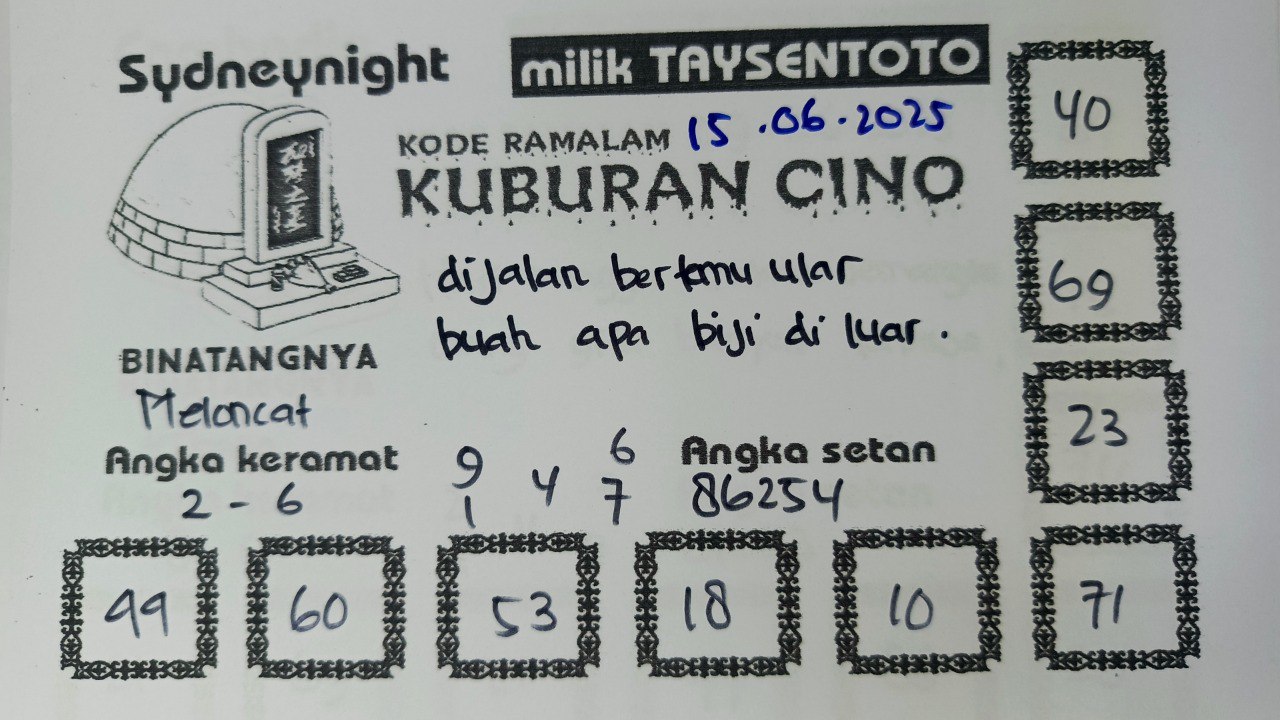 Sydneynight
milik TAYSENTOTO
KODE RAMALAM 15.06.2025
KUBURAN CINO
dijalan bertemu ular
buah apa biji di luar.
BINATANGNYA
Meloncat
Angka keramat
2 - 6
9 4 6
1 7
Angka setan
86254
40
69
23
99
60
53
18
10
71